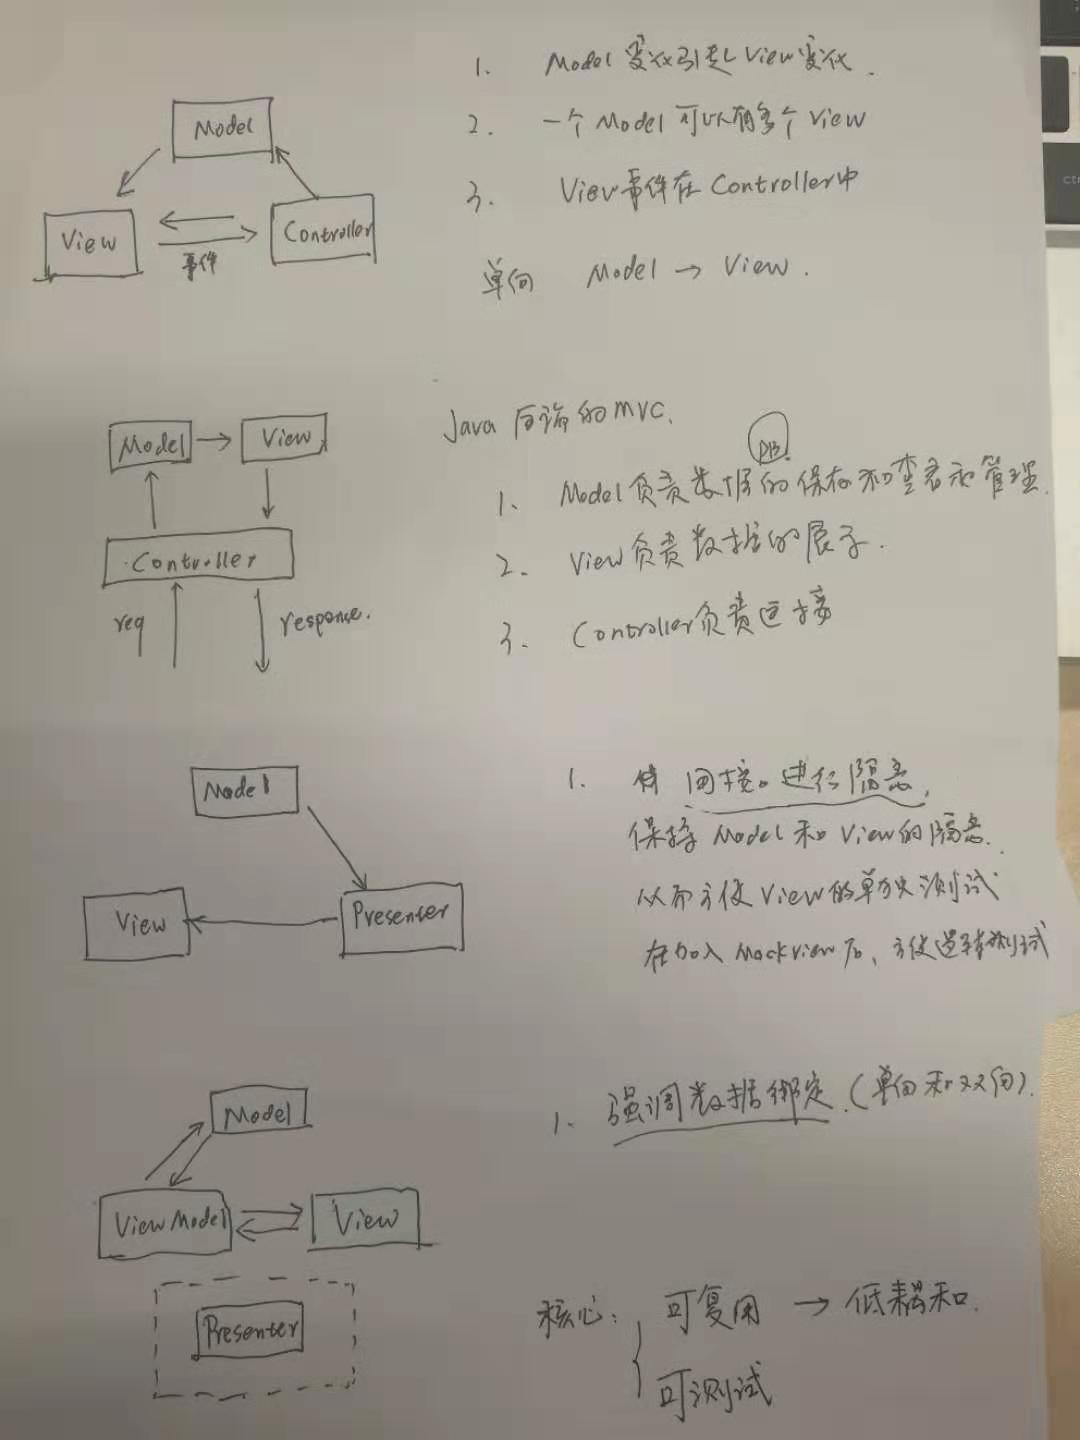 Model
View
Controller
事件
1. Model 变化引起 View 变化.
2. 一个 Model 可以有多个 View
3. View事件在 Controller中
单向 Model → View.
Model → View
Controller
req
response.
Java 后端的MVC.
DB.
1. Model负责数据的保存和查看和管理.
2. View负责数据的展示.
3. Controller负责连接
Model
View
Presenter
1. 用接口进行隔离,
保持 Model 和 View的隔离.
从而方便View的单独测试
在加入MockView后、方便逻辑测试
Model
ViewModel
View
Presenter
1. 强调数据绑定.(单向和双向).
核心: 可复用 → 低耦和.
可测试